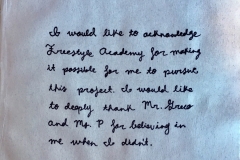 I would like to acknowledge
Freestyle Academy for making
it possible for me to pursue
this project. I would like
to deeply thank Mr. Greco
and Mr. P for believing in
me when I didn't.